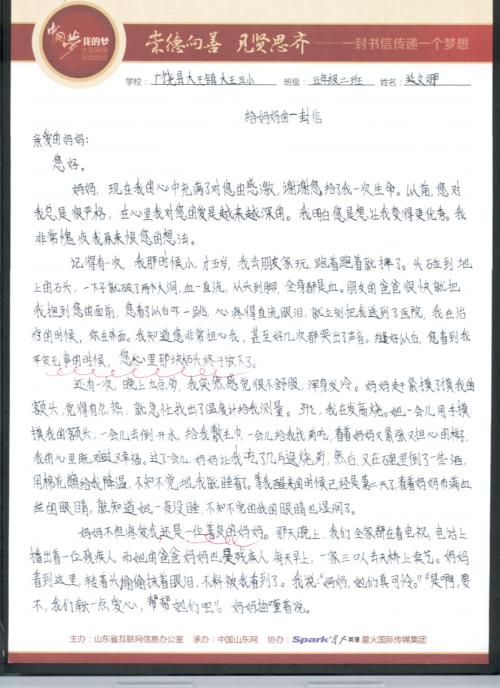 中国梦 我的梦
大型网络
互动活动
崇德向善 见贤思齐 ——一封书信传递一个梦想
学校：广饶县大王镇大王小 班级：五年级二班 姓名：
给妈妈的一封信
亲爱的妈妈：
您好。
妈妈，现在我的心中充满了对您的感激，谢谢您给了我一次生命。以前，您对
我总是很严格，在心里我对您的爱是越来越深的。我明白您是想让我变得更优秀。我
非常愧疚我原来恨您的想法。
记得有一次，我那时候小，才五岁，我去朋友家玩，跑着跑着就摔了。头碰到地
上的石头，一下子就破了两个大洞，血一直流，从头到脚，全身都是血。朋友的爸爸很快就把
我抱到您的面前，您看了以后吓一跳，心疼得直流眼泪，就立刻把我送到了医院，我在治
疗的时候，你在外面。我知道您非常担心我，甚至好几次都哭出了声音。缝好以后，您看到我
平安无事的时候，您心里那块石头终于放下了。
还有一次，晚上 点多，我突然感觉很不舒服，浑身发冷。妈妈赶紧摸了摸我的
额头，觉得有点热，就急忙找出了温度计给我测量。39℃，我在发高烧。她一会儿用手摸
摸我的额头，一会儿去倒开水，给我敷毛巾，一会儿给我找药吃，看着妈妈又紧张又担心的样子，
我的心里既难过又幸福。过了一会儿，妈妈让我吃了几片退烧药，然后，又在 里倒了一些酒，
用棉花蘸给我降温，不知不觉地我就睡着了。等我醒来的时候已经是第二天了，看着妈妈布满血
丝的眼睛，就知道她一夜没睡，不知不觉的我的眼睛也湿润了。
妈妈不但疼爱我还是一位善良的妈妈。那天晚上，我们全家都在看电视，电台上
播出着一位残疾人，而她的爸爸妈妈也是残疾人，每天早上，一家三口人去天桥上卖艺。妈妈
看到这里，转着头偷偷抹着眼泪，不料被我看到了。我说：“妈妈，她们真可怜。”“是啊，要
不，我们献一点爱心，帮帮她们吧”。妈妈 着说。
主办：山东省互联网信息办公室 承办：中国山东网 协办：Spark 星火英语 星火国际传媒集团